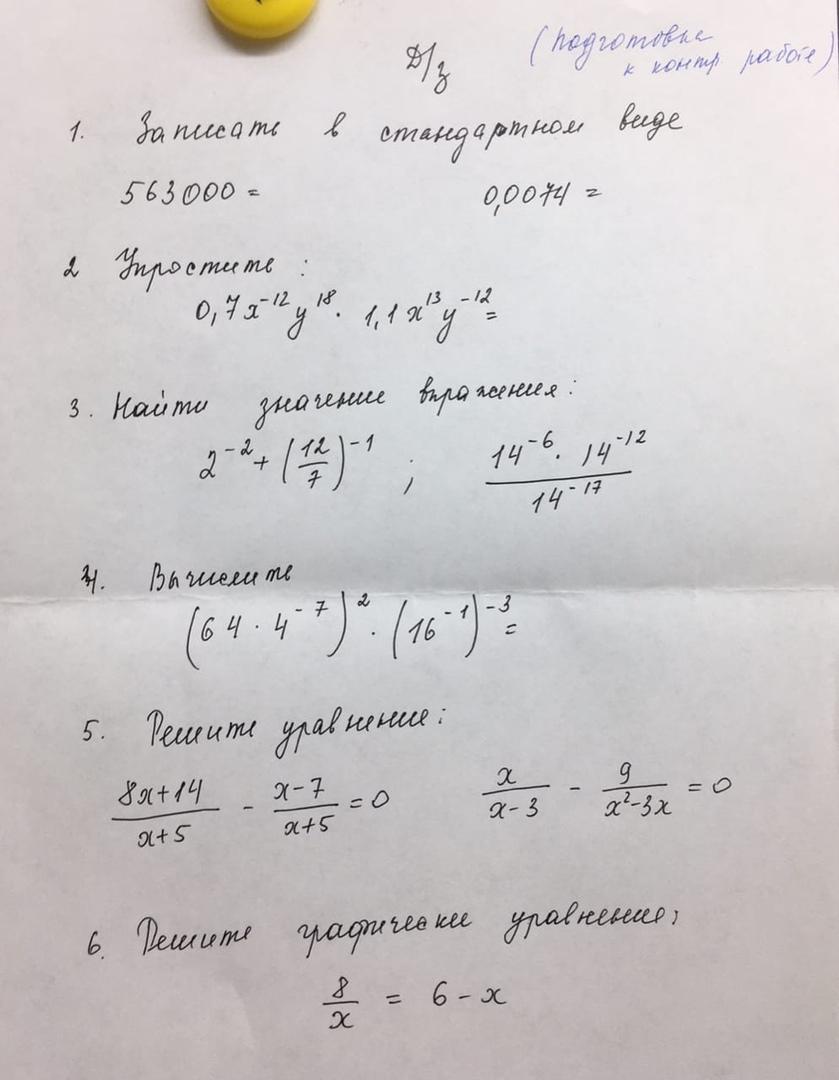 Д/з
(Подготовка
к контр. работе)
1. Записать в стандартном виде
563000 = 0,0074 =
2 Упростите :
0,7x⁻¹²y¹⁸ · 1,1x¹³y⁻¹² =
3. Найти значение выражения:
2⁻² + (12/7)⁻¹ ; (14⁻⁶ · 14⁻¹²)/14⁻¹⁷
4. Вычислите
(64 · 4⁻⁷)² · (16⁻¹)⁻³ =
5. Решите уравнение:
(8x+14)/(x+5) - (x-7)/(x+5) = 0 x/(x-3) - 9/(x²-3x) = 0
6. Решите графически уравнение:
8/x = 6 - x